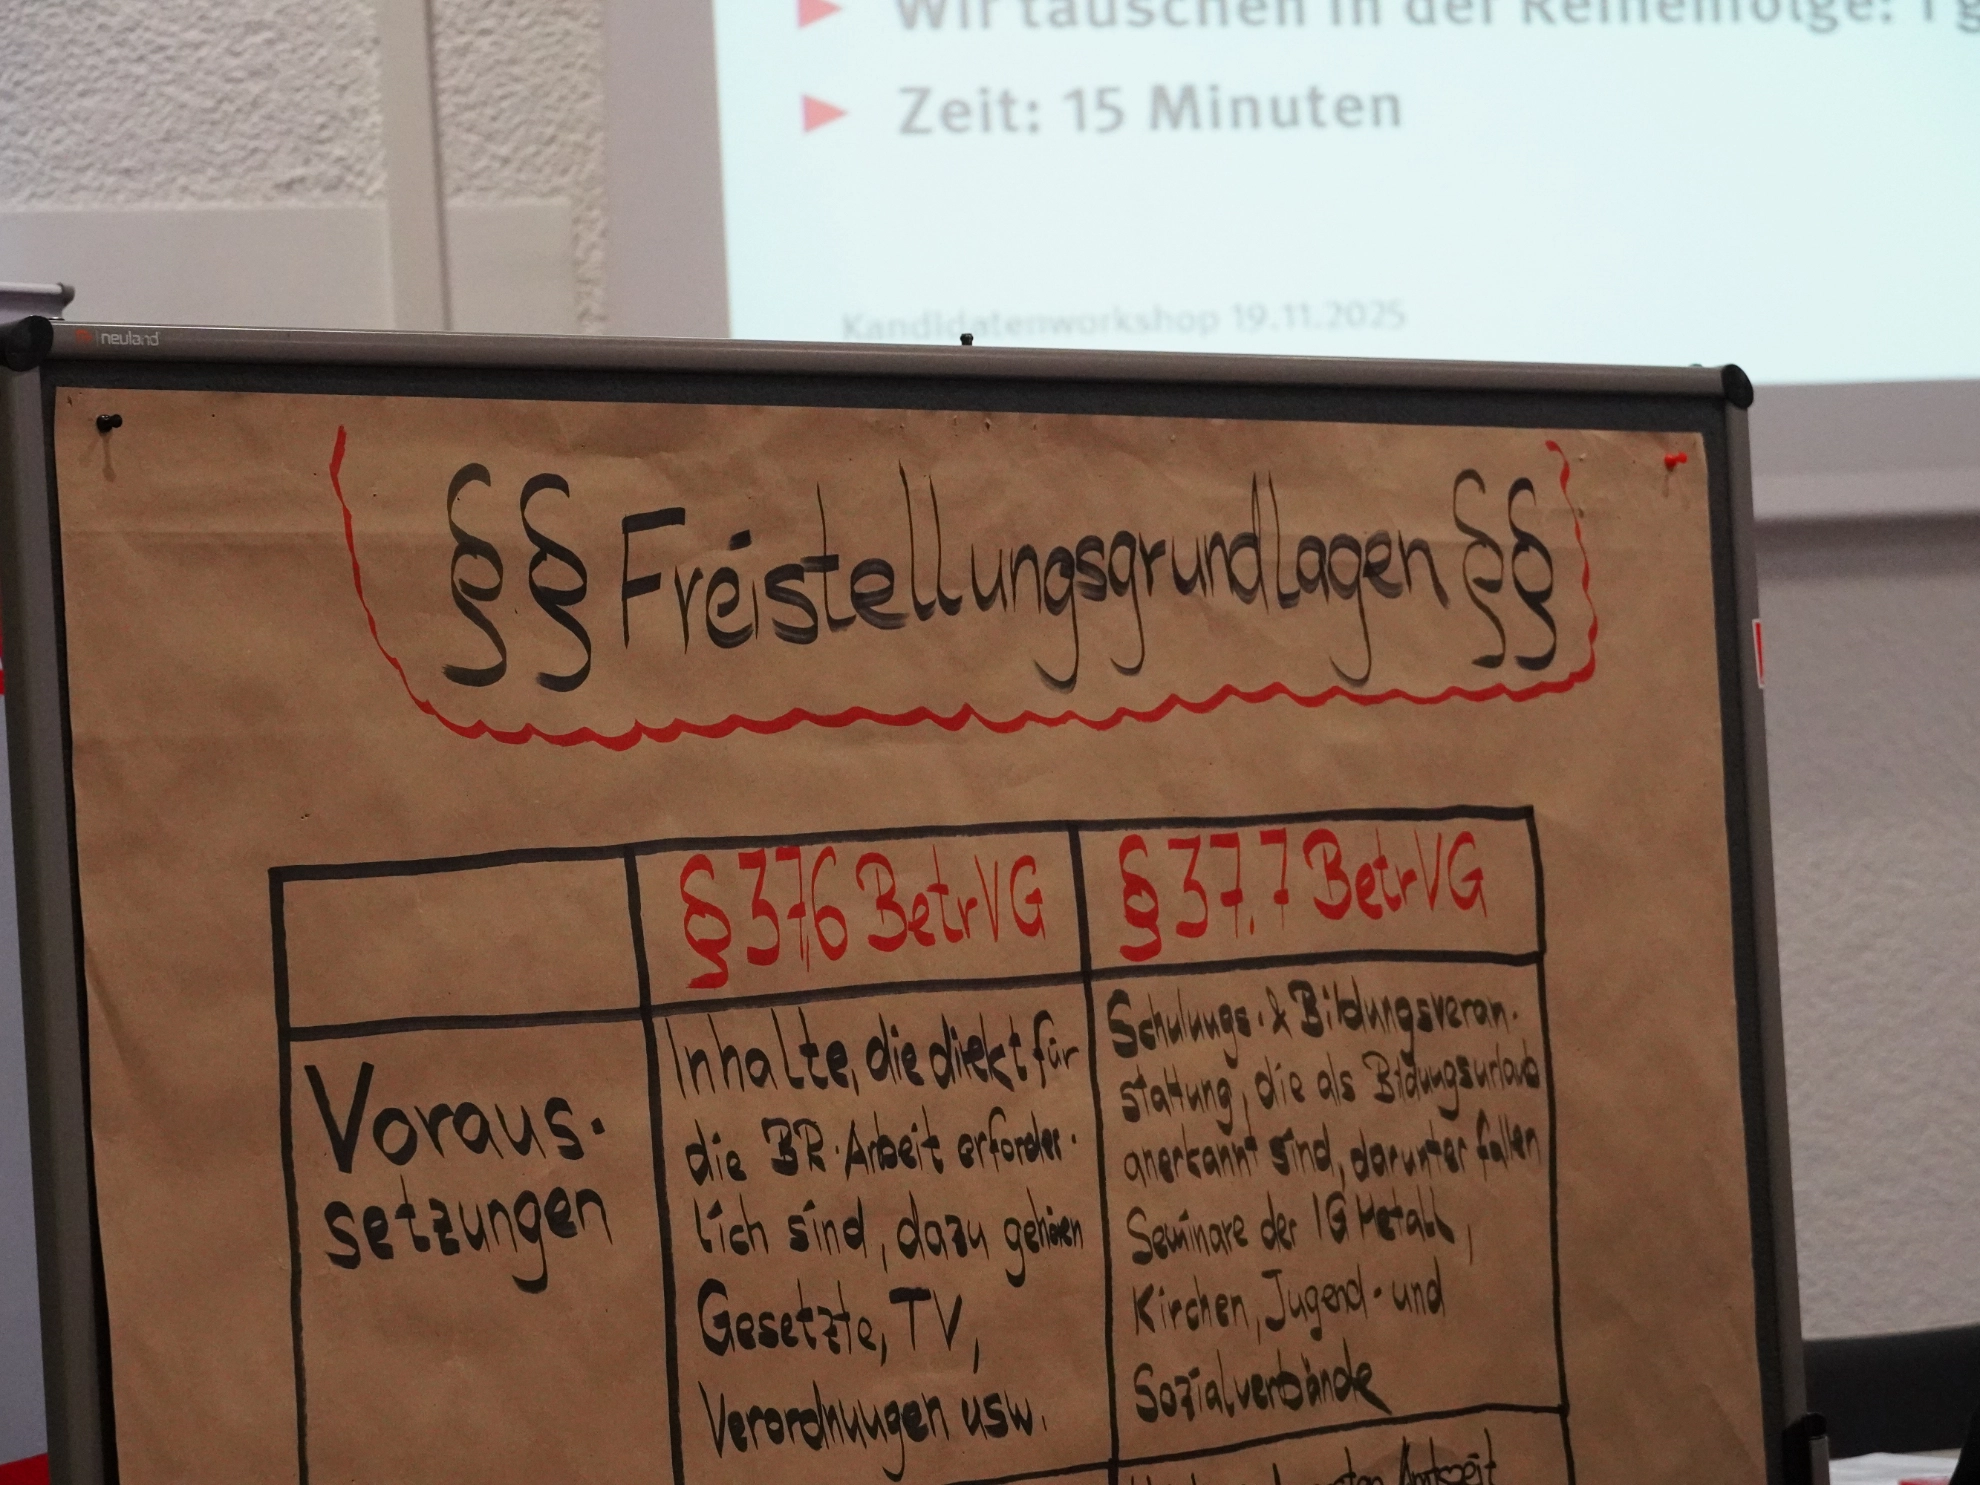 Wir tauschen in der Reihenfolge: 1
Zeit: 15 Minuten
Kandidatenworkshop 19.11.2025
neuland
§§ Freistellungsgrundlagen §§
§ 37.6 BetrVG
§ 37.7 BetrVG
Voraus-
setzungen
Inhalte, die direkt für
die BR-Arbeit erforder-
lich sind, dazu gehören
Gesetzte, TV,
Verordnuugen usw.
Schuluugs- & Bildungsveran-
stattung, die als Bildungsurlaub
anerkannt sind, darunter fallen
Seminare der IG Metall,
Kirchen, Jugend- und
Sozialverbände
Amtszeit